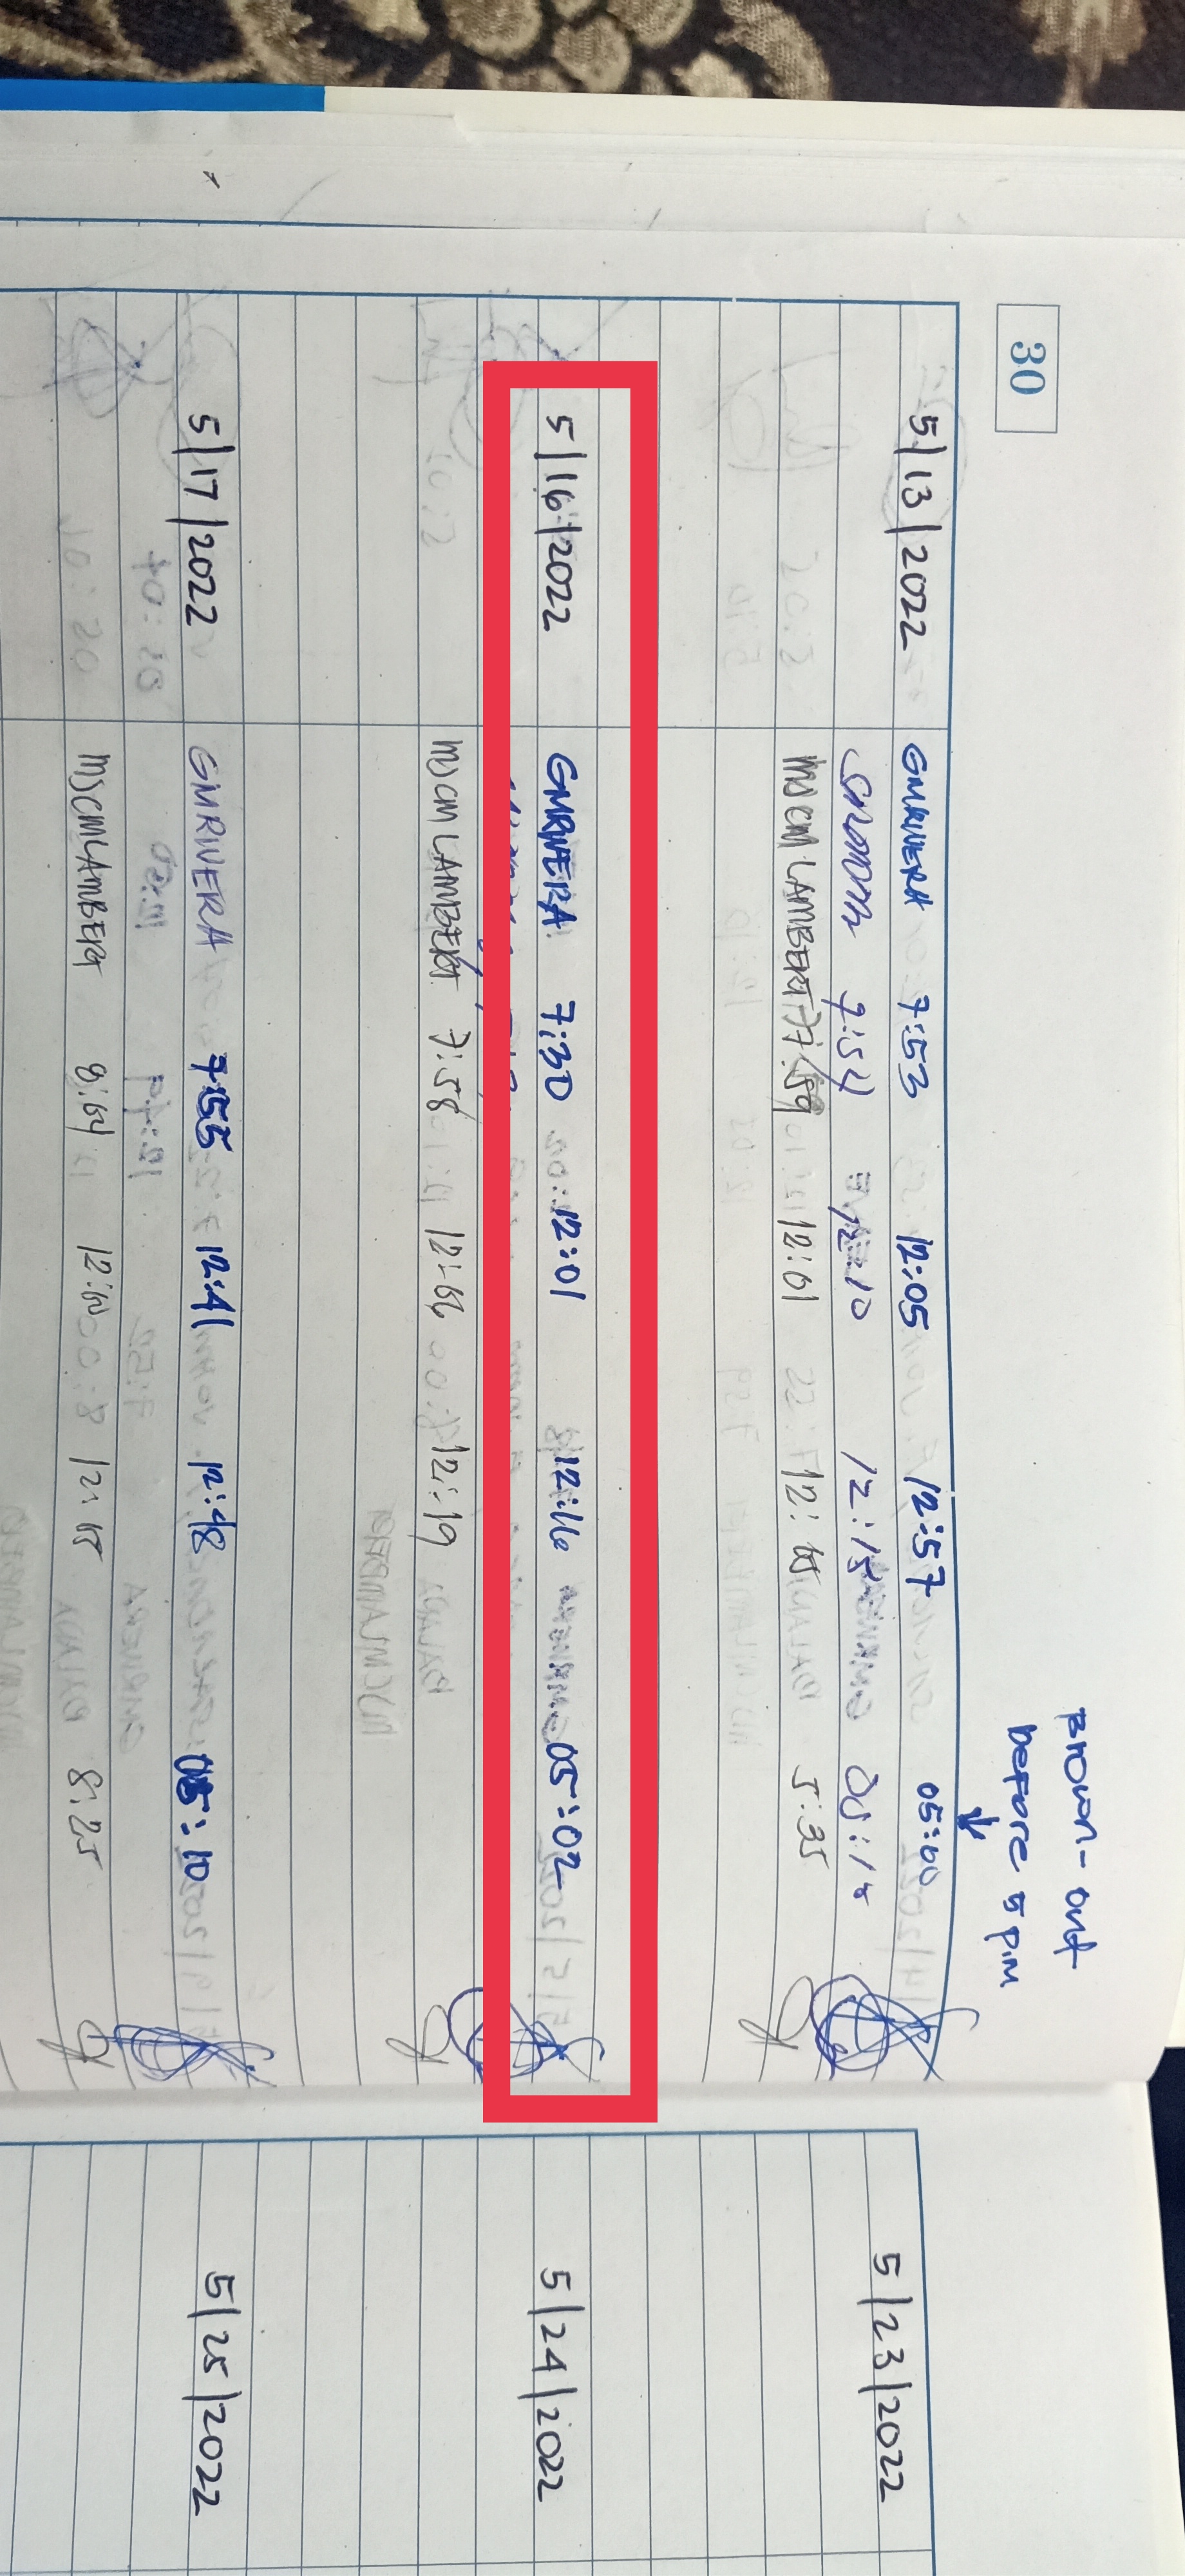 30
brown-out
before 5 pm
5/13/2022 GMRIVERA 7:53 12:05 12:57 05:00
7:54 12:10 12:15
MJCMLAMBERT 7:59 12:01 12: 5:35
5/16/2022 GMRIVERA 7:30 12:01 12:16 05:02
MJCMLAMBERT 7:58 12:19
5/17/2022 GMRIVERA 7:55 12:41 12:48 05:10
MJCMLAMBERT 8:25
5/23/2022
5/24/2022
5/25/2022